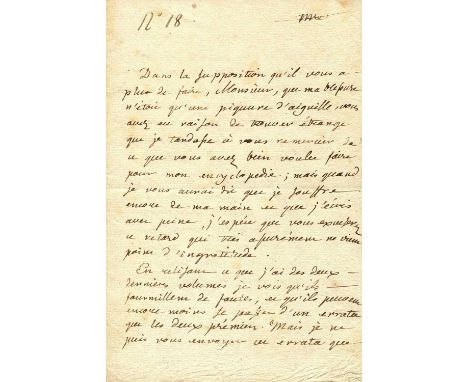 N° 18
Dans la supposition qu'il vous a
plu de faire, Monsieur, que ma blessure
n'étoit qu'une piquure d'aiguille, vous
avez eu raison de trouver étrange
que je tardasse à vous remercier de
ce que vous avez bien voulu faire
pour mon encyclopédie; mais quand
je vous aurai dit que je souffre
encore de ma main et que j'écris
avec peine, j'espère que vous excuserez
ce retard qui très assurément ne vient
point d'ingratitude.
En relisant ce que j'ai des deux
derniers volumes je vois qu'ils
fourmillent de fautes, et qu'ils peuvent
encore moins se passer d'un errata
que les deux prémiers. Mais je ne
puis vous envoyer cet errata que